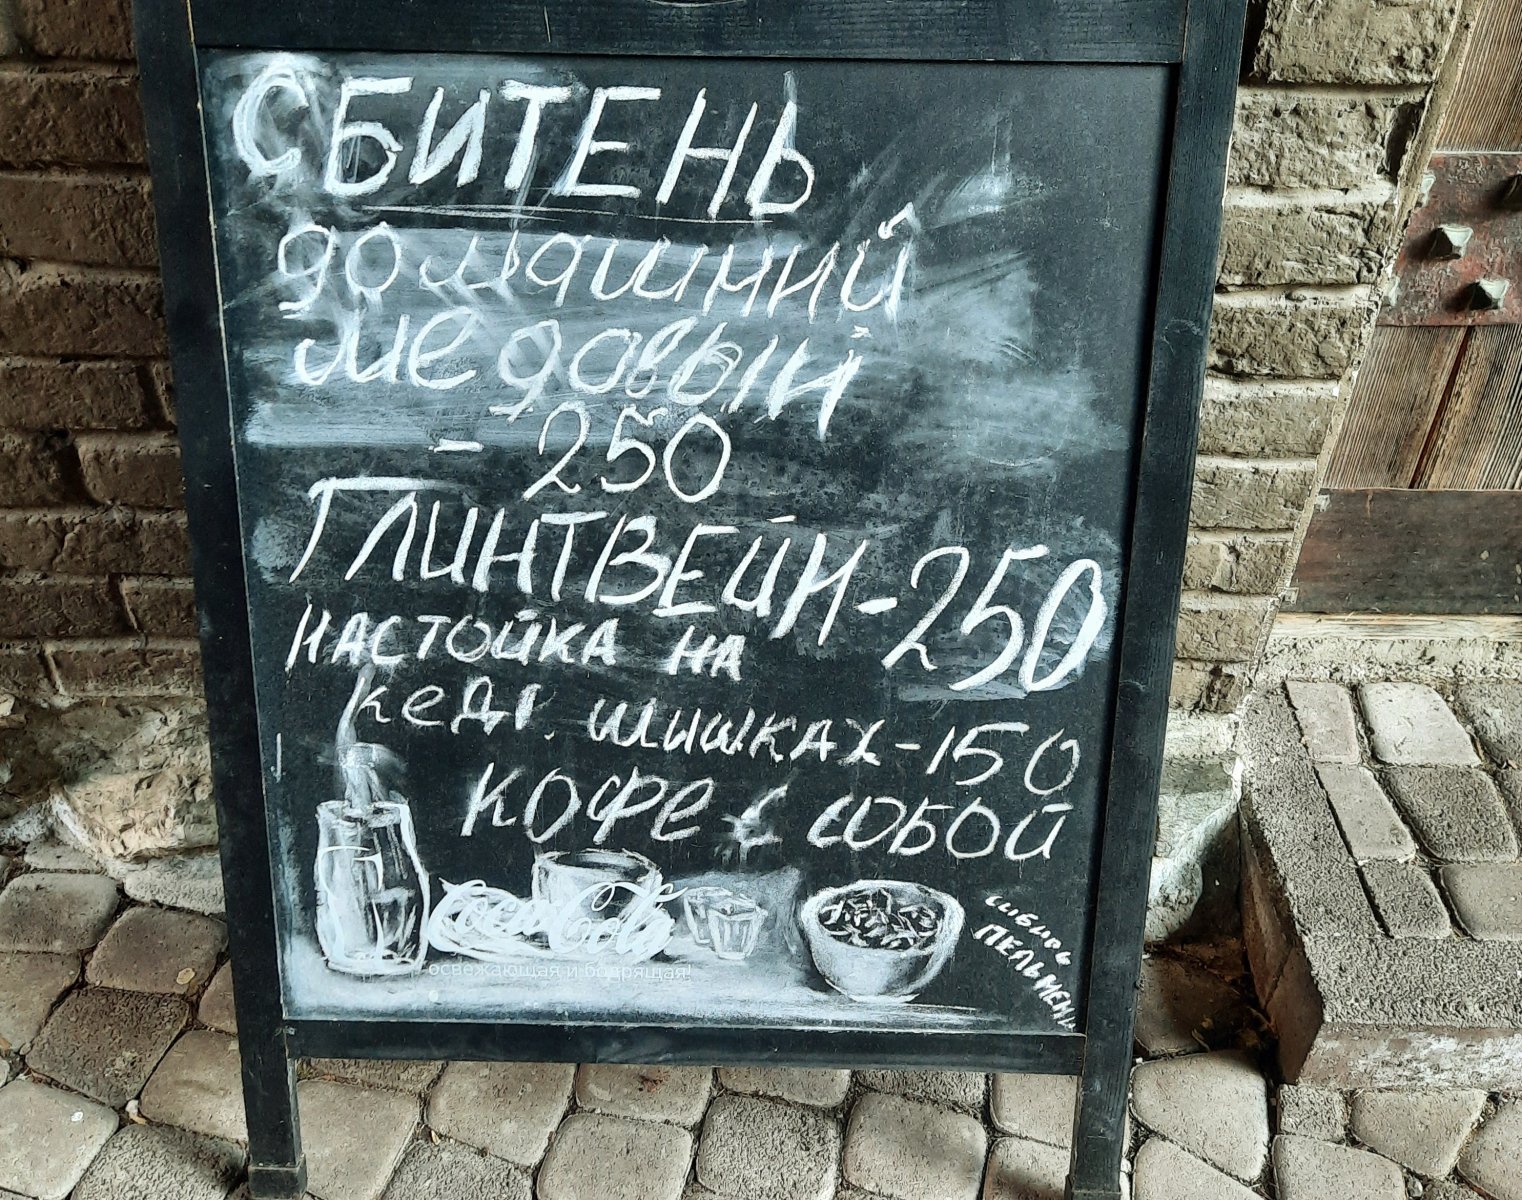 СБИТЕНЬ
домашний
медовый
- 250
ГЛИНТВЕЙН-250
НАСТОЙКА НА
кедр. шишках-150
КОФЕ с собой
Coca-Cola
освежающая и бодрящая!
СИБИРЬ
ПЕЛЬМЕНИ